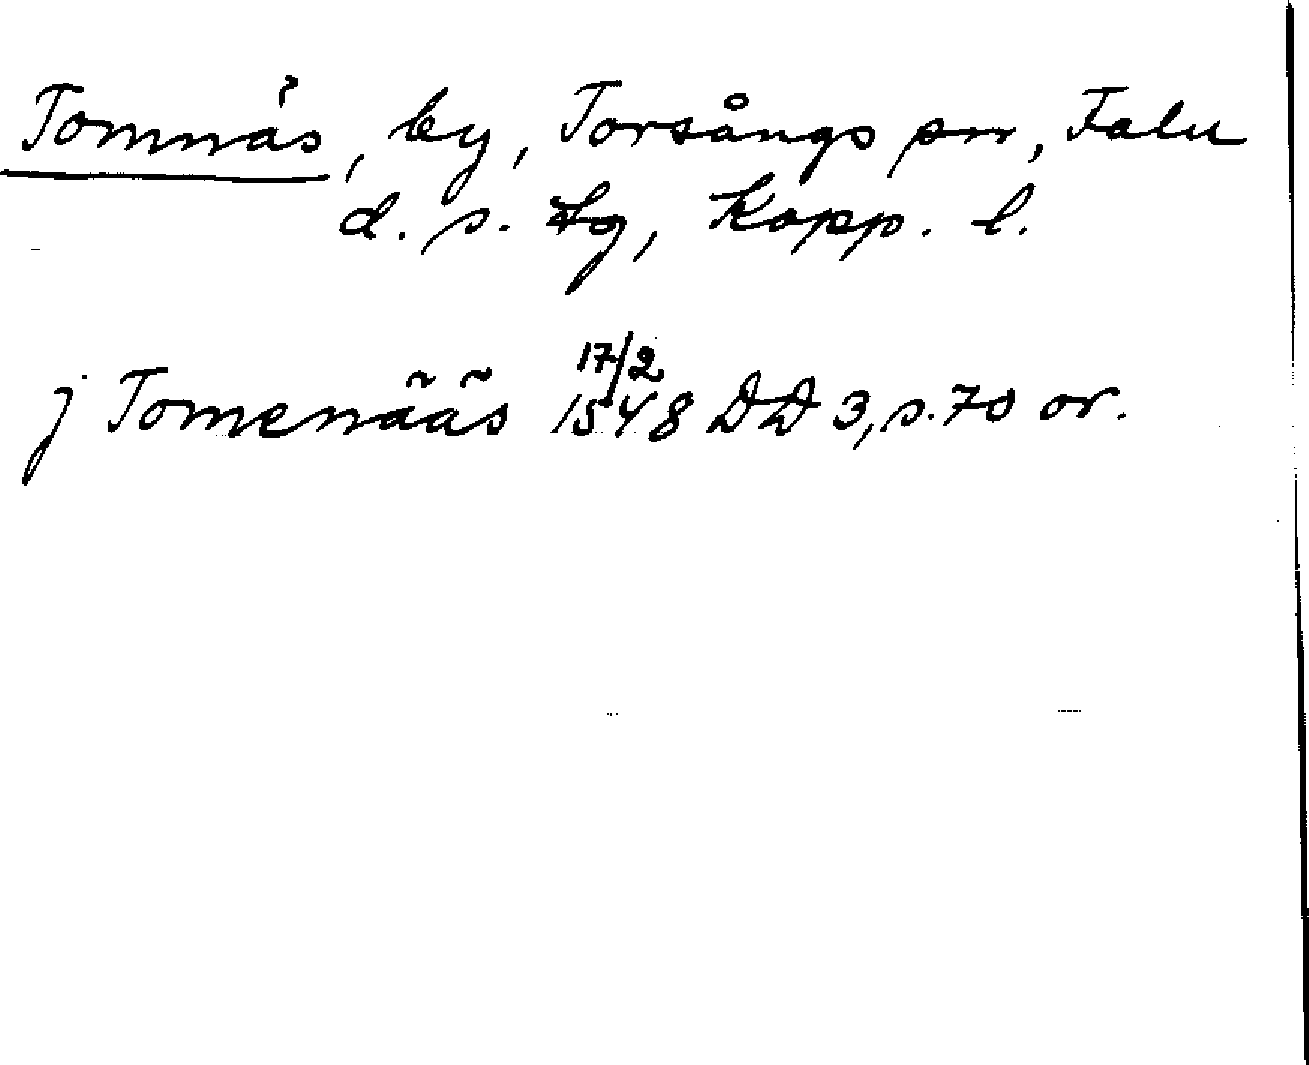 Tomnäs, by, Torsångs sn, Falu
d. s. tg, Kopp. l.
j Tomenääs 17/2 1548 DD 3, s. 70 or.